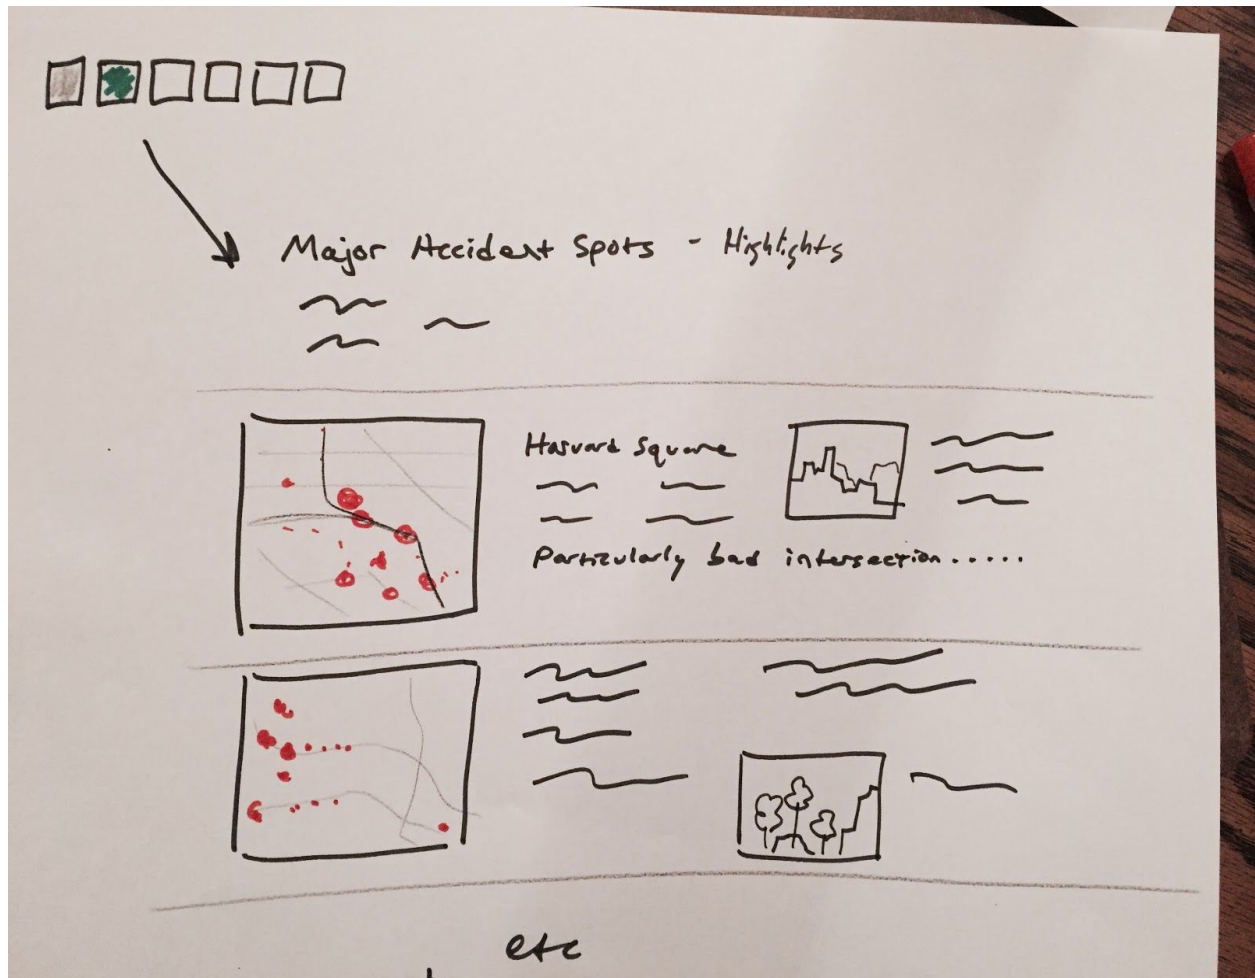 Major Accident Spots - Highlights
Harvard Square
Particularly bad intersection.....
etc